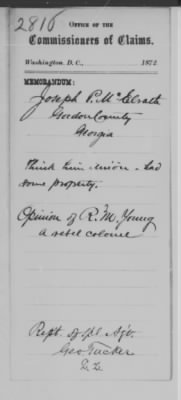 2816
OFFICE OF THE
Commissioners of Claims.
Washington, D. C., 1872
MEMORANDUM:
Joseph P. McElrath
Gordon County
Georgia
Think him union - had
some property.
Opinion of R. M. Young
a rebel colonel
Rept. of Spl. Agt.
Geo Tucker